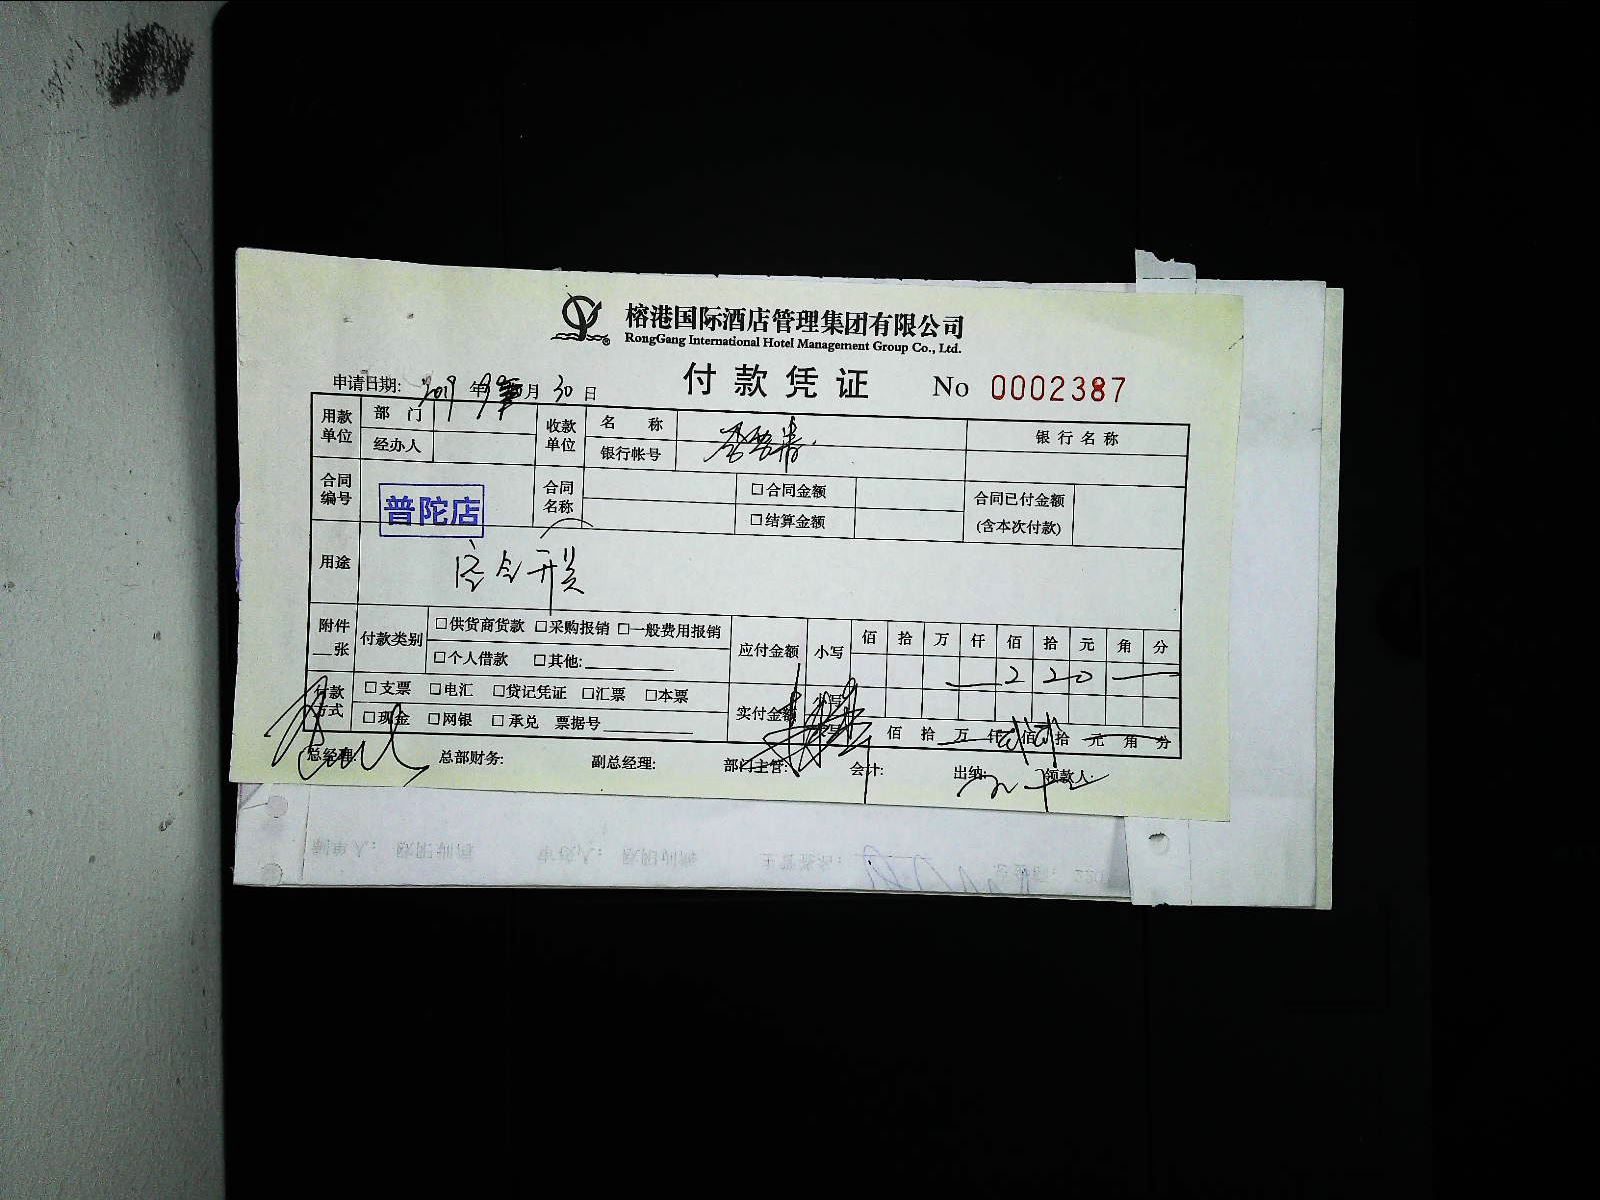 榕港国际酒店管理集团有限公司
RongGang International Hotel Management Group Co., Ltd.
付款凭证 No 0002387
申请日期: 2019 年 月 30 日
用款单位 部门 收款单位 名称 银行名称
经办人 银行帐号
合同编号 普陀店 合同名称 □合同金额 合同已付金额
□结算金额 (含本次付款)
用途
附件 __张 付款类别 □供货商货款 □采购报销 □一般费用报销 应付金额 小写 佰 拾 万 仟 佰 拾 元 角 分
□个人借款 □其他: 2 2 0
付款方式 □支票 □电汇 □贷记凭证 □汇票 □本票 实付金额 小写
□现金 □网银 □承兑 票据号 佰 拾 万 仟 佰 拾 元 角 分
总经理: 总部财务: 副总经理: 部门主管: 会计: 出纳: 领款人: